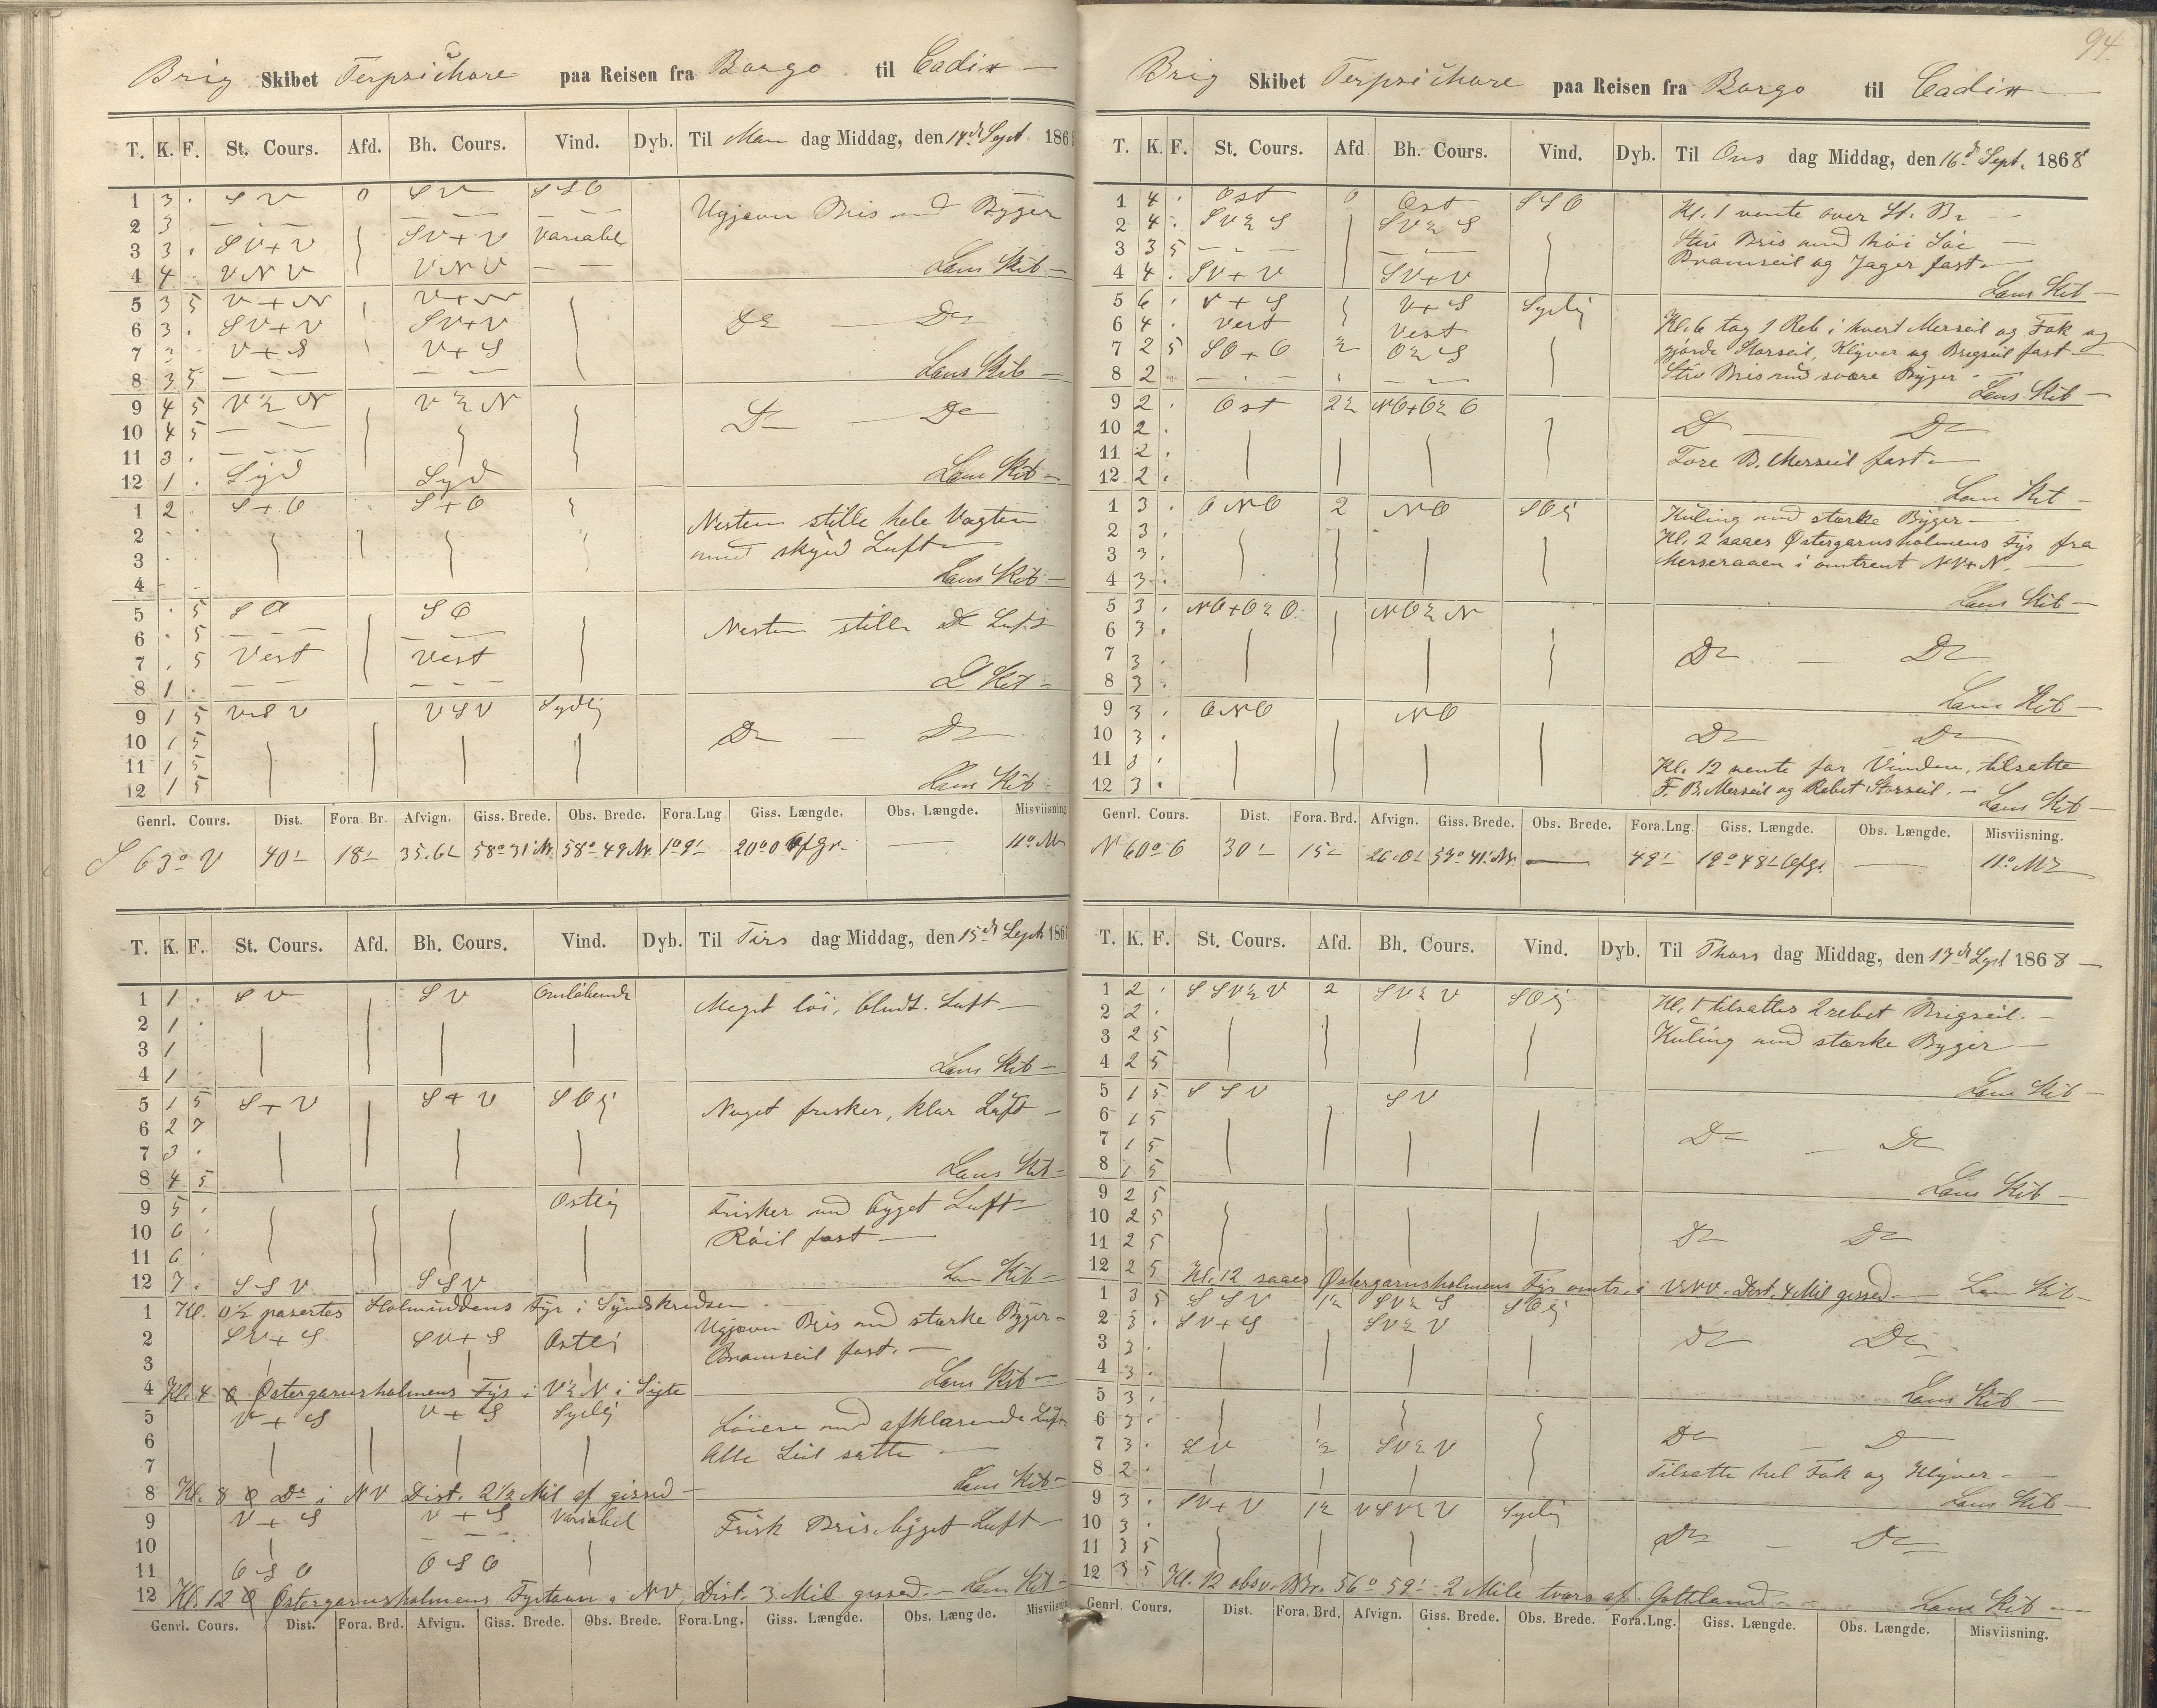 94.
Brig Skibet Terpsichore paa Reisen fra Borgo til Cadix —
T. K. F. St. Cours. Afd. Bh. Cours. Vind. Dyb. Til Man dag Middag, den 14de Sept. 186
1 3 . SV 0 SV SSO
Ugjævn Bris med Byger
2 3 — — — — Variabel
3 3 . SV+V SV+V
4 4 . VNV VNV — —
Læns Kib —
5 3 5 V+N V+N
6 3 . SV+V SV+V
Do — Do
7 3 V+S V+S
8 3 5 — — — —
Læns Kib —
9 4 5 V½N V½N
10 4 5 — —
Do — Do
11 3 . — —
12 1 . Syd Syd
Læns Kib —
1 2 S+O S+O
Nesten stille hele Vagten
2
3
med skyet Luft —
4
Læns Kib —
5 . 5 SO SO
Nesten stille Do Luft
6 . 5 — — — —
7 . 5 Vest Vest
8 1 . — — — —
L Kib —
9 1 5 VSV VSV Sydlig
10 1 5
Do — Do
11 1 5
12 1 5
Læns Kib —
Genrl. Cours. Dist. Fora. Br. Afvign. Giss. Brede. Obs. Brede. Fora.Lng Giss. Længde. Obs. Længde. Misviisning
S 63° V 40' 18' 35.6' 58°31' N. 58°49 N. 1°9' 20°0 Ofgr. — 11° M
T. K. F. St. Cours. Afd. Bh. Cours. Vind. Dyb. Til Tirs dag Middag, den 15de Sept 186
1 1 . SV SV Omløbende
Meget löi, Luft —
2 1 .
3 1
4 1
Læns Kib —
5 1 5 S+V S+V SOlig
Noget frisker, klar Luft —
6 2 7
7 3 .
8 4 5
Læns Kib —
9 5 . Ostlig
Frisker med byget Luft —
10 6 .
Röil fast —
11 6 .
12 7 . SSV SSV
Læns Kib —
1 Kl. 0½ pasertes Holmuddens Fyr i Syndskredsen
Ugjævn Bris med stærke Byger —
2 SV+S SV+S Ostlig
Bramseil fast. —
3
4 Kl. 4 Østergarnsholmens Fyr i V½N i Sigte
Læns Kib —
5 V+S V+S Sydlig
Löiere med afklarende Luft
6
Alle Seil satte —
7
8 Kl. 8 Do i NV Dist. 2½ Mil af gissed —
Læns Kib —
9 V+S V+S Variabel
Frisk Bris byget Luft —
10
11 OSO OSO
12 Kl. 12 Østergarnsholmens Fyrtaarn i NV, Dist. 3 Mil gissed. — Læns Kib —
Genrl. Cours. Dist. Fora. Brd. Afvign. Giss. Brede. Obs. Brede. Fora.Lng. Giss. Længde. Obs. Længde. Misviisn
Brig Skibet Terpsichore paa Reisen fra Borgo til Cadix —
T. K. F. St. Cours. Afd Bh. Cours. Vind. Dyb. Til Ons dag Middag, den 16de Sept. 1868
1 4 . Ost 0 Ost SSO
Kl. 1 vente over St. Br —
2 4 . SV½S SV½S
Stiv Bris med höi Söe —
3 3 5 — — — —
Bramseil og Jager fast —
4 4 . SV+V SV+V
Læns Kib —
5 6 . V+S V+S Sydlig
Kl. 6 tog 1 Reb i hvert Merseil og Fok og
6 4 . Vest Vest
gjorde Storseil, Klyver og Brigseil fast —
7 2 5 SO+O ½ O½S
Stiv Bris med svære Byger —
8 2 — — — —
Læns Kib —
9 2 . Ost 2½ NO+O½O
10 2 .
Do — Do
11 2 .
Fore B. Merseil fast —
12 2 .
Læns Kib —
1 3 . ONO 2 NO SOlig
Kuling med stærke Byger —
2 3 .
Kl. 2 saaes Østergarnsholmens Fyr fra
3 3 .
Merseraaen i omtrent NV+N. —
4 3 .
Læns Kib —
5 3 . NO+O½O NO½N
6 3 .
Do — Do
7 3 .
8 3 .
Læns Kib —
9 3 . ONO NO
10 3 .
Do Do
11 3 .
Kl. 12 vente for Vinden, tilsatte
12 3 .
F. B. Merseil og Rebet Storseil. — Læns Kib —
Genrl. Cours. Dist. Fora. Brd. Afvign. Giss. Brede. Obs. Brede. Fora.Lng. Giss. Længde. Obs. Længde. Misviisning.
N 60° O 30' 15' 26.0' 57°41' N. — 49' 19°48' Ofgr. — 11° M
T. K. F. St. Cours. Afd. Bh. Cours. Vind. Dyb. Til Thors dag Middag, den 17de Sept 1868 —
1 2 . SSV½V 2 SV½V SOlig
Kl. 1 tilsattes 2 rebet Brigseil. —
2 2 .
Kuling med stærke Byger —
3 2 5
4 2 5
Læns Kib —
5 1 5 SSV SV
6 1 5
Do — Do
7 1 5
8 1 5
Læns Kib —
9 2 5
10 2 5
Do Do
11 2 5
12 2 5 Kl. 12 saaes Østergarnsholmens Fyr omtr. i VNV. Dist. 4 Mil gissed — Læns Kib —
1 3 5 SSV 1½ SV½S SOlig
2 3 . SV+S SV½V
Do Do
3 3 .
4 3 .
Læns Kib —
5 3 .
6 3 .
Do — Do
7 3 . SV ½ SV½V
8 2 .
Tilsatte hel Fok og Klyver —
Læns Kib —
9 3 . SV+V 1½ VSV½V Sydlig
10 3 .
Do — Do
11 3 5
12 3 5 Kl. 12 obsv. Br. 56° 59' 2 Mile tvers af Gottland — Læns Kib —
Genrl. Cours. Dist. Fora. Brd. Afvign. Giss. Brede. Obs. Brede. Fora.Lng. Giss. Længde. Obs. Længde. Misviisning.